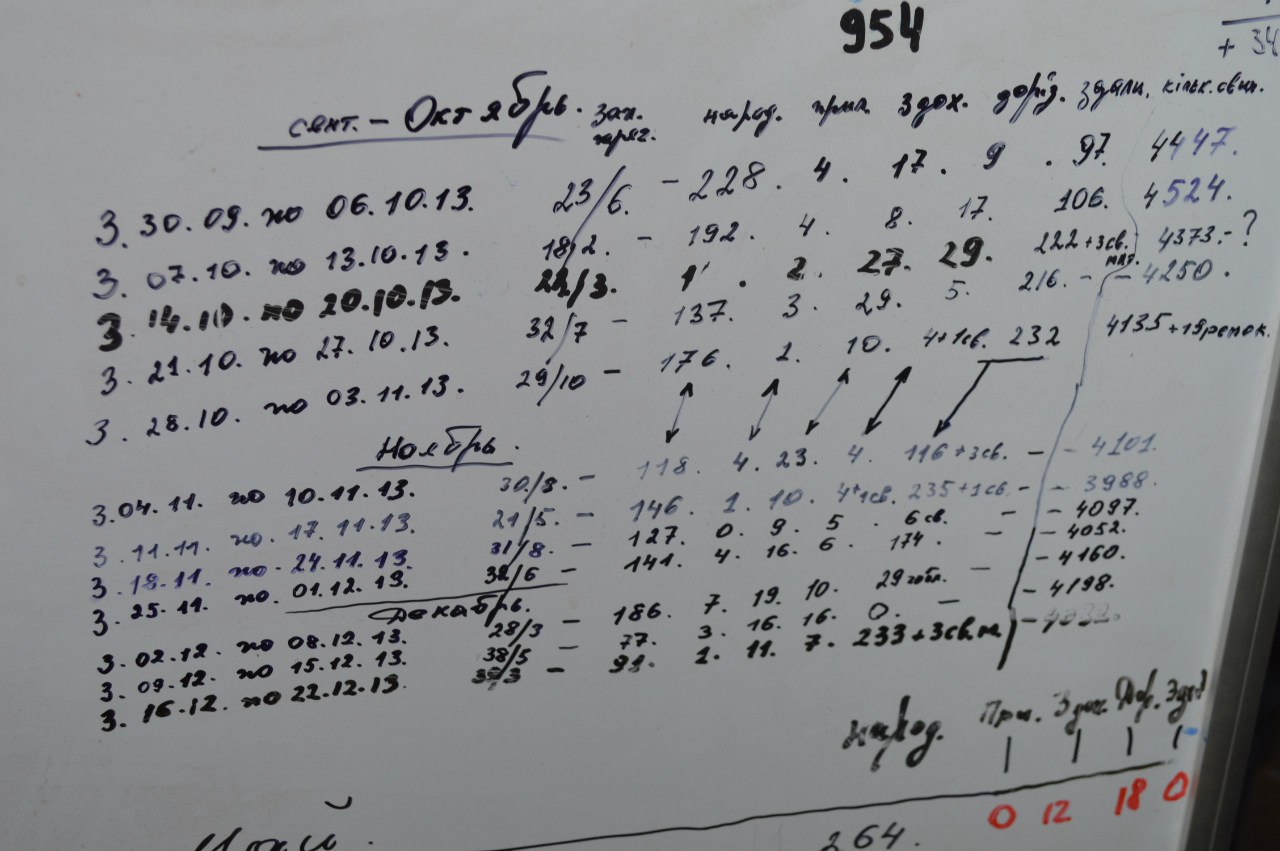 954
+ 34
сент. - Октябрь. зах. народ. прип. здох. доріз. здали, кільк. свин.
З. 30.09. по 06.10.13. 23/6. - 228. 4. 17. 9. 97. 4447.
З. 07.10. по 13.10.13. 18/2. - 192. 4. 8. 17. 106. 4524.
З. 14.10. по 20.10.13. 24/3. 1 . 2. 27. 29. 222+3св. мат. 4373.-?
З. 21.10. по 27.10.13. 32/7 - 137. 3. 29. 5. 216. - - 4250.
З. 28.10. по 03.11.13. 29/10 - 176. 1. 10. 4+1св. 232 4135+19ремок.
Ноябрь.
З. 04.11. по 10.11.13. 30/8. - 118. 4. 23. 4. 116+3св. - - 4101.
З. 11.11. по. 17.11.13. 21/5. - 146. 1. 10. 4+1св. 235+1св. - - 3988.
З. 18.11. по. 24.11.13. 31/8. - 127. 0. 9. 5. 6св. - - 4097.
З. 25.11. по. 01.12.13. 32/6 - 141. 4. 16. 6. 174. - - 4052.
Декабрь.
З. 02.12. по 08.12.13. 28/3 - 186. 7. 19. 10. 29 - - 4160.
З. 09.12. по 15.12.13. 38/5 77. 3. 16. 16. 0. - - 4198.
З. 16.12. по 22.12.13. - 91. 2. 11. 7. 233+3св.м - 4032.
народ. При. Здох. Дор.
0 12 18 0
264.